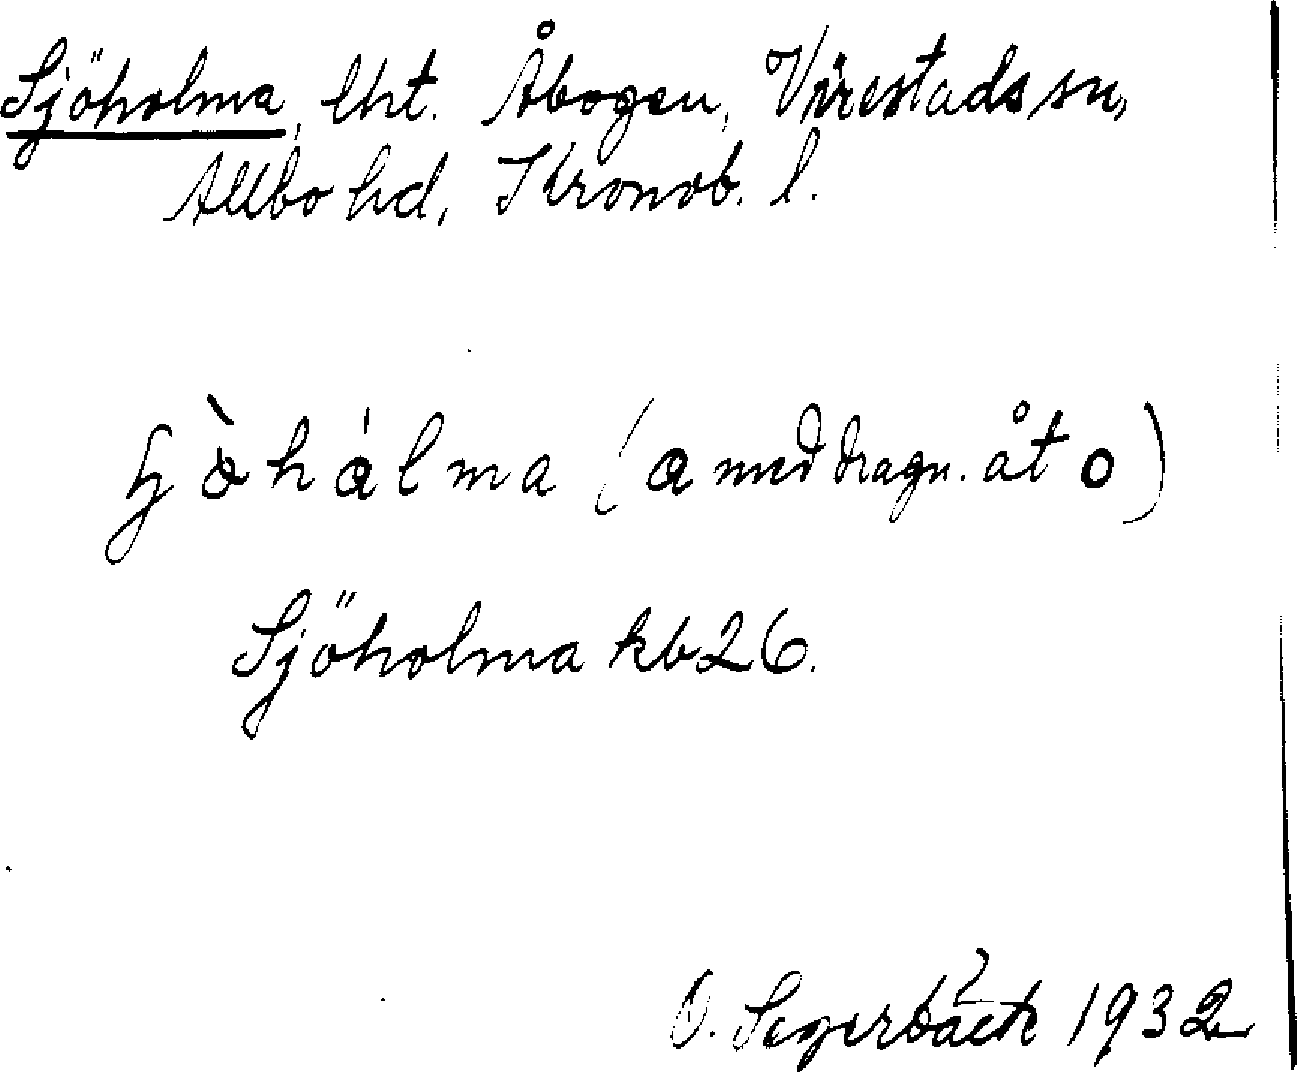 Sjöholma, lht. Åbogen, Virestads sn,
Allbo hd, Kronob. l.
hàhálma (a med dragn. åt o)
Sjöholma kb 26.
O. Segerbäck 1932